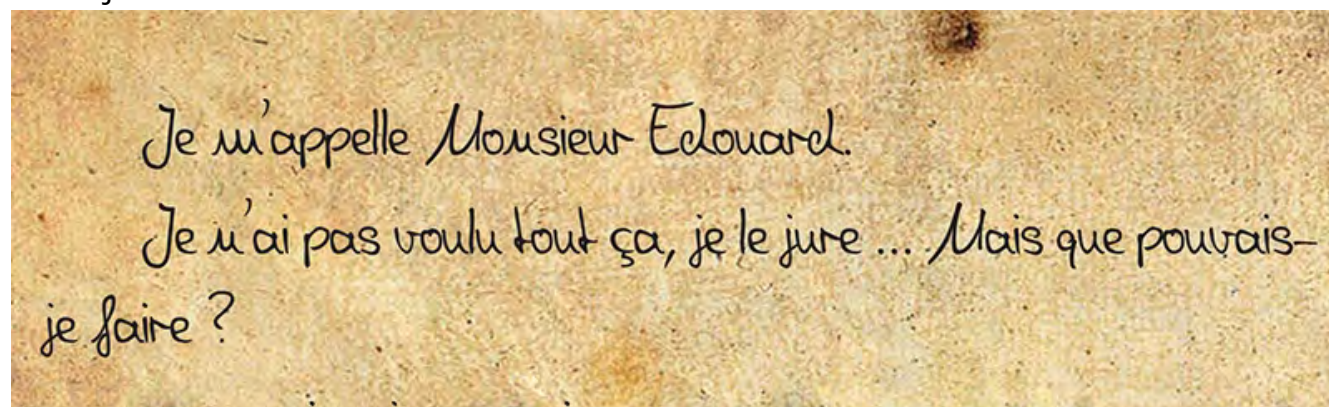 Je m'appelle Monsieur Edouard.
Je n'ai pas voulu tout ça, je le jure ... Mais que pouvais-
je faire ?